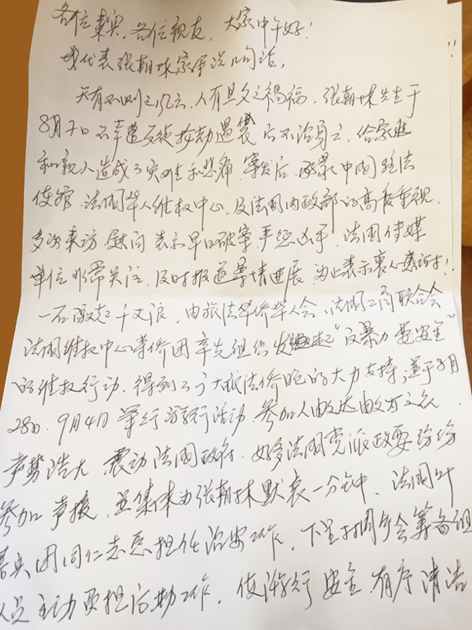 各位来宾，各位亲友，大家中午好！
我代表张朝林家属说几句话，
天有不测之风云，人有旦夕之祸福，张朝林先生于
8月7日不幸遭受被抢劫遇袭后不治身亡，给家庭
和亲人造成了灾难和悲痛，案发后，承蒙中国驻法
使馆、法国华人维权中心、及法国内政部的高度重视，
多次来访慰问表示早日破案严惩凶手，法国传媒
单位非常关注，及时报道事情进展，为此表示衷心感谢！
一石激起千丈浪，由旅法华侨华人会、法国工商联合会
法国维权中心等侨团率先组织发起"反暴力要安全"
的维权行动，得到了广大旅法侨胞的大力支持，并于8月
28日、9月4日举行游行活动，参加人数达数万之众，
声势浩大，震动法国政府，好多法国党派政要纷纷
参加声援，且集体为张朝林默哀一分钟，法国
团同仁志愿担任治安工作，下筹备组
人员主动负担后勤工作，使游行安全有序清洁